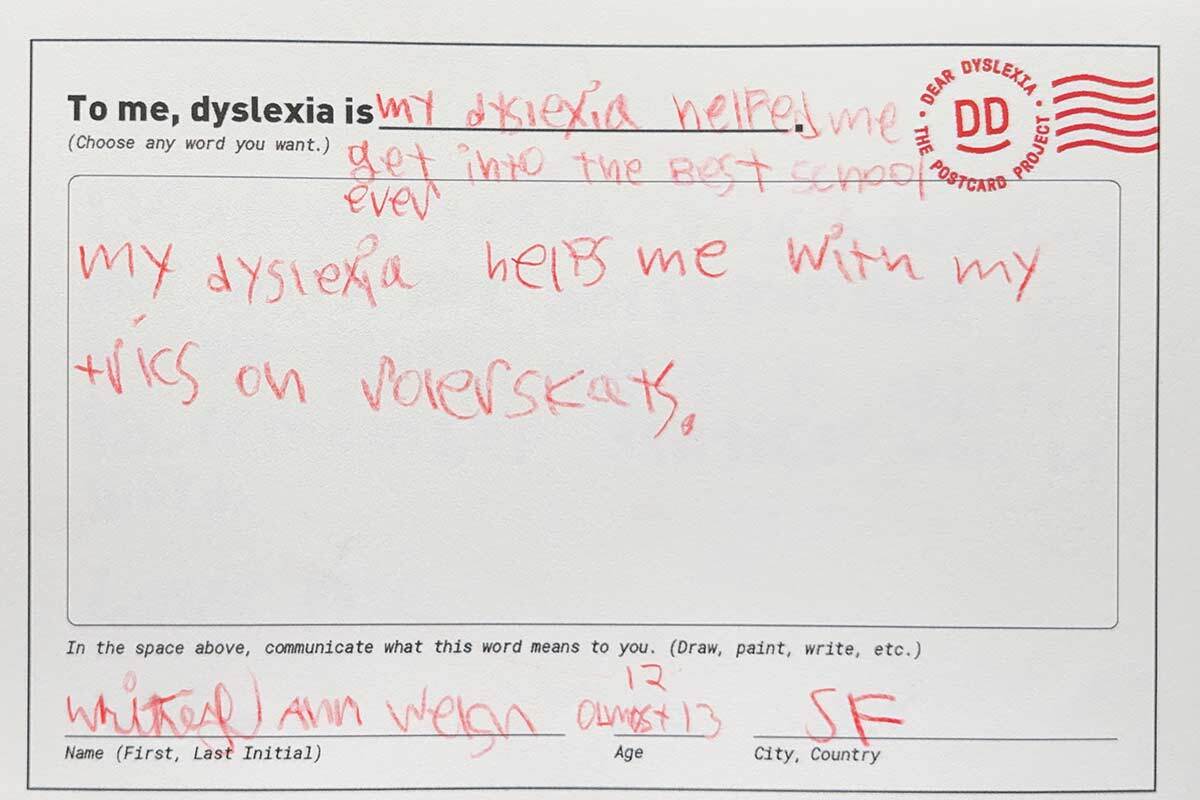 To me, dyslexia is my dyslexia helped me
(Choose any word you want.)
get into the Best school
ever
DEAR DYSLEXIA • THE POSTCARD PROJECT •
DD
my dyslexia helps me with my
triks on rolerskats.
In the space above, communicate what this word means to you. (Draw, paint, write, etc.)
Ann
12
almost 13
SF
Name (First, Last Initial)
Age
City, Country